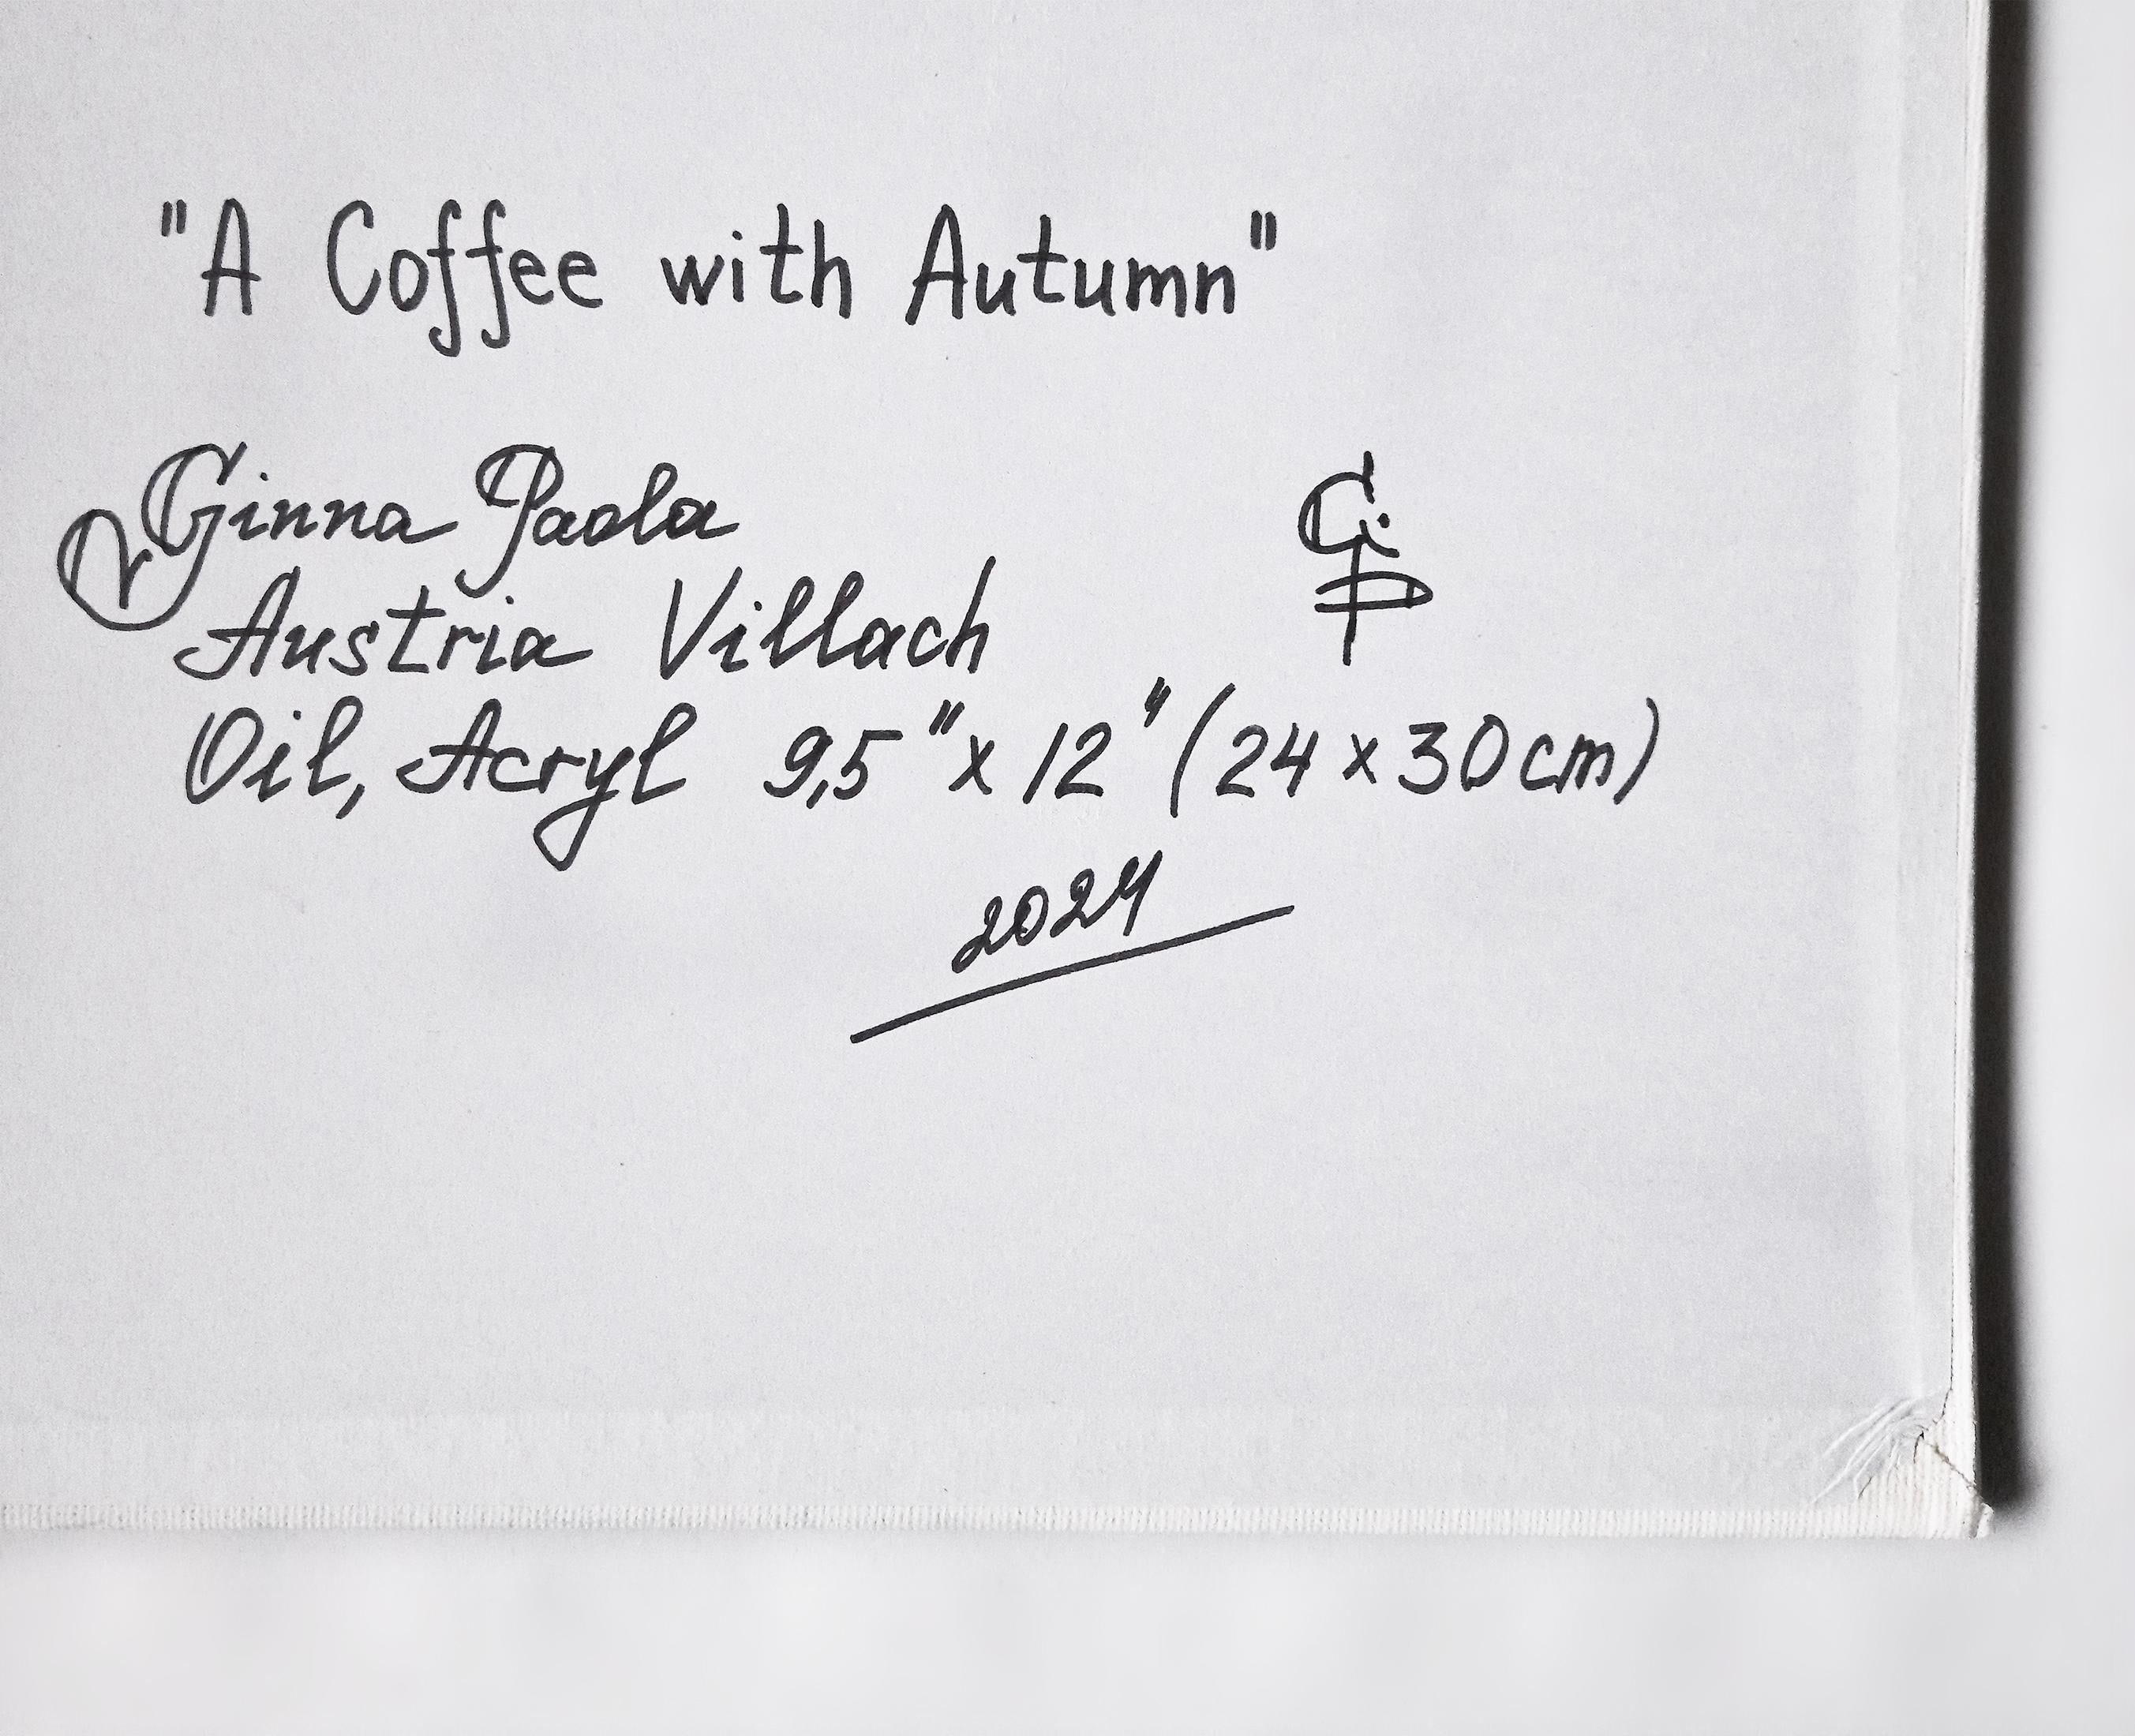 "A Coffee with Autumn"
Ginna Paola
Austria Villach
Oil, Acryl 9,5" x 12" (24 x 30 cm)
2024